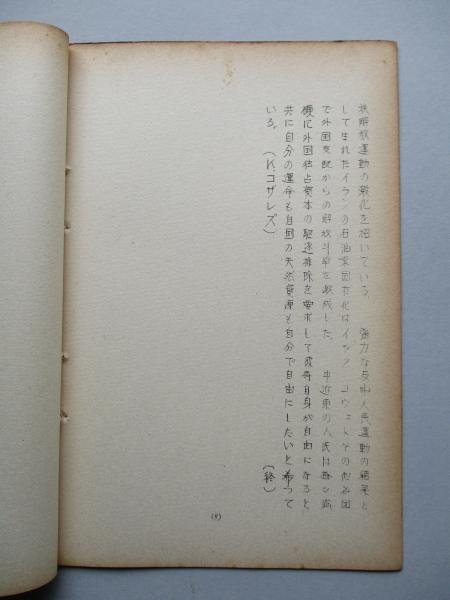 族解放運動の激化を招いている。　強力な反帝人民運動の結果と
して生れたイランの石油業国有化はイラク、コウェートその他各国
で外国支配からの解放斗争を激成した。中近東の人民は毎日強
硬に外国独占資本の駆逐排除を要求して彼等自身が自由になると
共に自分の運命も自国の天然資源も自分で自由にしたいと希って
いる。　（K．コザレズ）
（終）
(9)